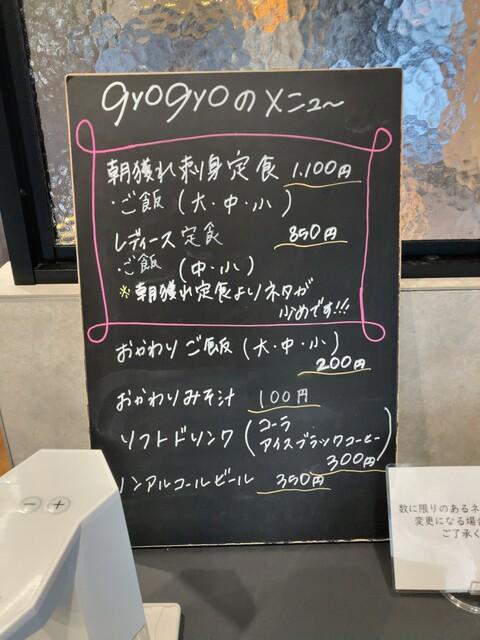 gyogyoのメニュ～
朝獲れ刺身定食 1.100円
・ご飯(大・中・小)
レディース定食 850円
・ご飯(中・小)
※朝獲れ定食よりネタが
少めです!!!
おかわりご飯(大・中・小)
200円
おかわりみそ汁 100円
ソフトドリンク(コーラ
アイスブラックコーヒー)
300円
ノンアルコールビール 350円
数に限りのあるネ
変更になる場合
ご了承く
− +